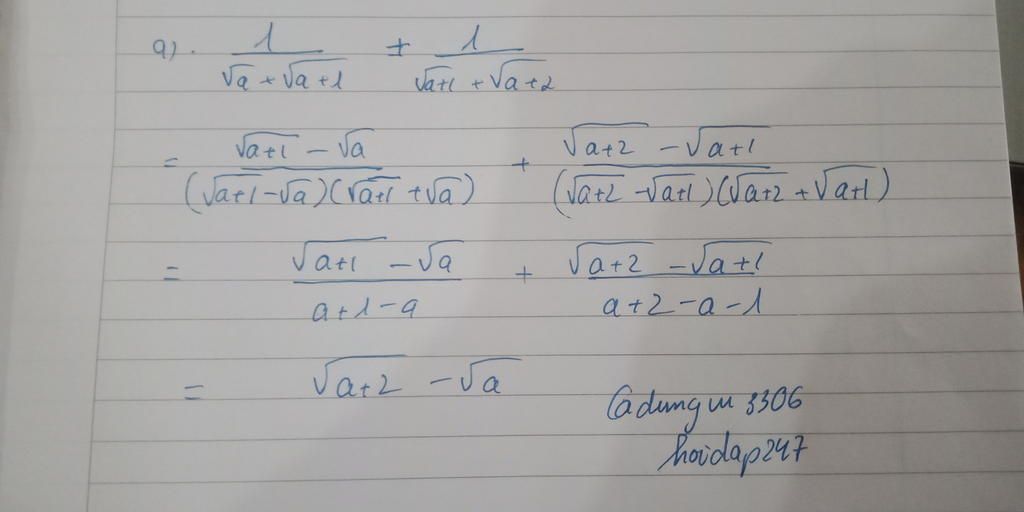 a). 1/(√a + √a+1) + 1/(√a+1 + √a+2)
= (√a+1 - √a)/((√a+1 - √a)(√a+1 + √a)) + (√a+2 - √a+1)/((√a+2 - √a+1)(√a+2 + √a+1))
= (√a+1 - √a)/(a+1-a) + (√a+2 - √a+1)/(a+2-a-1)
= √a+2 - √a
hoidap247